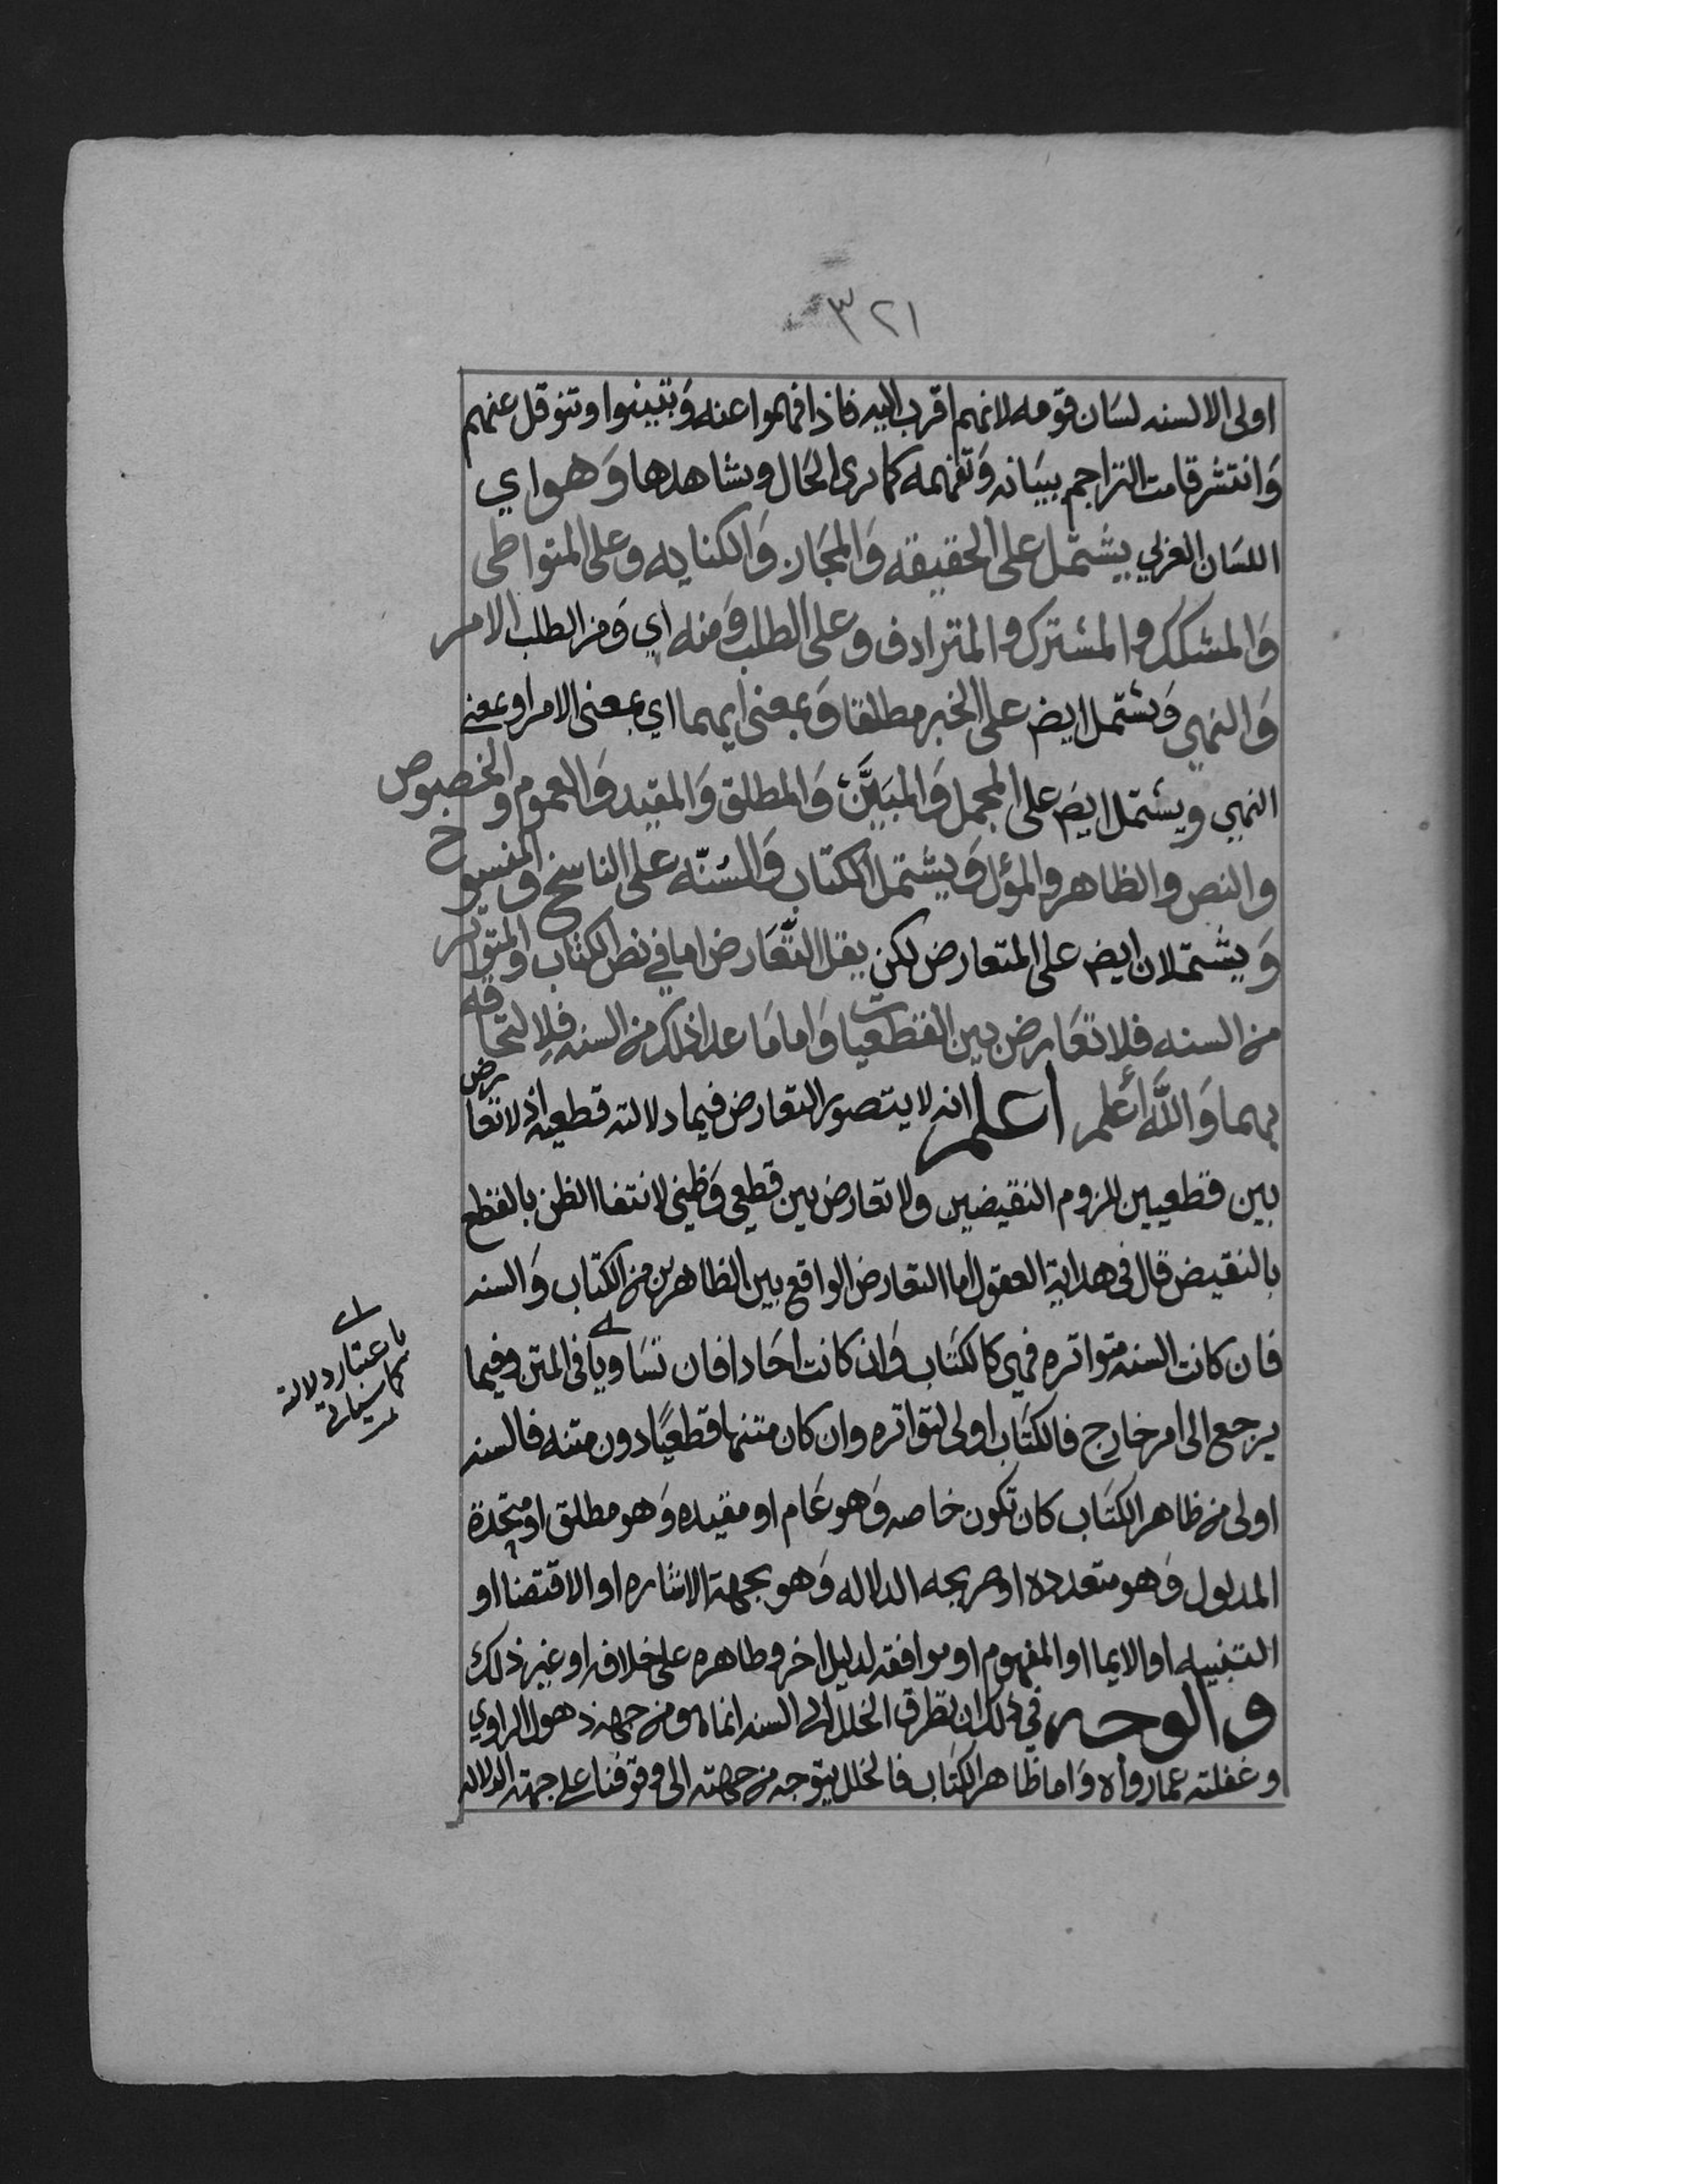 ٣٢١
اولى الالسنه لسان قومه لانهم اقرب اليه فاذا فهموا عنه وتبينوا وتنوقل عنهم
وَانتشر قامت التراجم ببيَانه وَتفهيمه كما نرى الحَال ونشاهدها وَهو اي
اللسَان العربي يشتمل على الحقيقه وَالمجَاز وَالكنايه وعلى المتواطى
وَالمشكك والمشترك والمترادف وعلى الطلب وَمنه اي وَمن الطلب الامر
وَالنهي وَيشتمل ايضا على الخبر مطلقا وَبمعنى ايهما اي بمعنى الامر او بمعنى
النهي ويشتمل ايضا على المجمل وَالمبَيَّن وَالمطلق وَالمقيد وَالعموم والخصوص
والنص والظاهر والمؤل وَيشتمل الكتاب وَالسُنّه على الناسخ والمنسوخ
وَيشتملان ايضا على المتعارض لكن يقل التّعَارض اما في نص الكتاب والمتواتر
من السنه فلا تعَارض بين القطعيات وَاما مَا عدا ذلك من السنه فلِالتحاقه
بهما وَاللَّه أعلم اعلم انه لا يتصور التعارض فيما دلالته قطعيه اذ لا تعارض
بين قطعيين للزوم النقيضين ولا تعارض بين قطعي وَظني لانتفا الظن بالقطع
بالنقيض قال في هداية العقول اما التعارض الواقع بين الظاهرين من الكتاب وَالسنه
فان كانت السنه متواتره فهي كالكتاب وَان كانت احَادا فان تسَاويا في المتن وفيما
يرجع الى امر خارج فالكتَاب اولى لتواتره وان كان متنها قطعيًا دون متنه فالسنه
اولى من ظاهر الكتَاب كان تكون خاصه وَهو عَام او مقيده وَهو مطلق او متحدة
المدلول وَهو متعدده او صريحه الدلاله وَهو بجهة الاشاره او الاقتضا او
التنبيه او الايما او المفهوم او موافقه لدليل اخر وظاهره على خلافه او غير ذلك
والوجه في ذلك ان تطرق الخلل الى السنه انما هو من جهة ذهول الراوي
وغفلته عما رواه وَاما ظاهر الكتَاب فالخلل يتوجه من جهته الى وقوفنا على جهة الدلاله
باعتبار دلالة